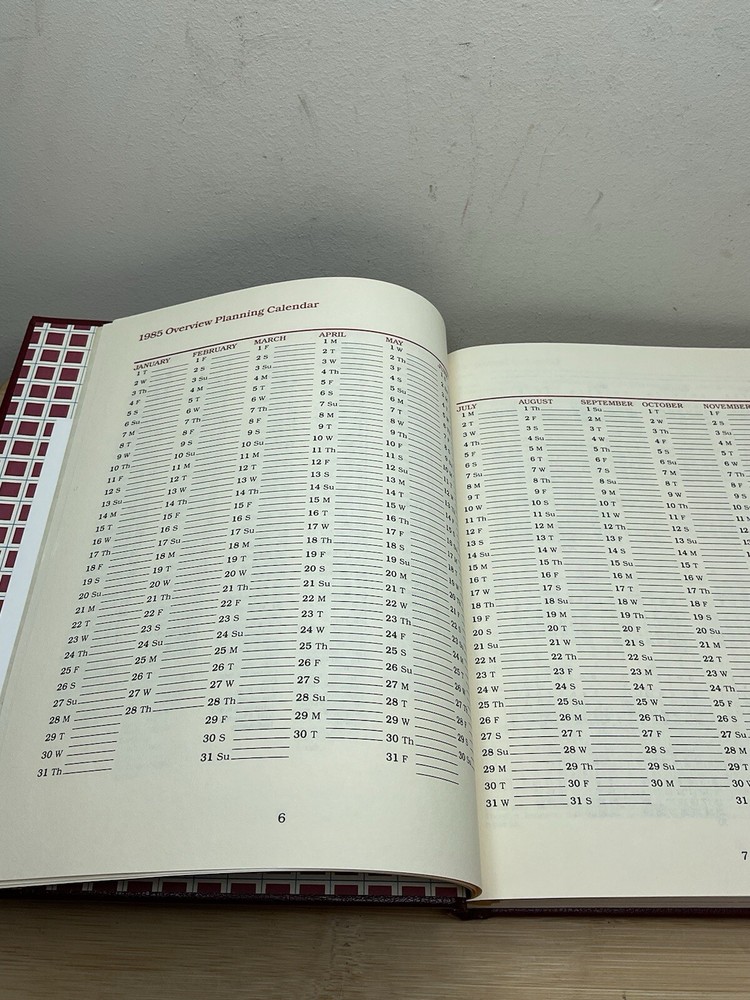 1985 Overview Planning Calendar
JANUARY
1 T
2 W
3 Th
4 F
5 S
6 Su
7 M
8 T
9 W
10 Th
11 F
12 S
13 Su
14 M
15 T
16 W
17 Th
18 F
19 S
20 Su
21 M
22 T
23 W
24 Th
25 F
26 S
27 Su
28 M
29 T
30 W
31 Th
FEBRUARY
1 F
2 S
3 Su
4 M
5 T
6 W
7 Th
8 F
9 S
10 Su
11 M
12 T
13 W
14 Th
15 F
16 S
17 Su
18 M
19 T
20 W
21 Th
22 F
23 S
24 Su
25 M
26 T
27 W
28 Th
MARCH
1 F
2 S
3 Su
4 M
5 T
6 W
7 Th
8 F
9 S
10 Su
11 M
12 T
13 W
14 Th
15 F
16 S
17 Su
18 M
19 T
20 W
21 Th
22 F
23 S
24 Su
25 M
26 T
27 W
28 Th
29 F
30 S
31 Su
APRIL
1 M
2 T
3 W
4 Th
5 F
6 S
7 Su
8 M
9 T
10 W
11 Th
12 F
13 S
14 Su
15 M
16 T
17 W
18 Th
19 F
20 S
21 Su
22 M
23 T
24 W
25 Th
26 F
27 S
28 Su
29 M
30 T
MAY
1 W
2 Th
3 F
4 S
5 Su
6 M
7 T
8 W
9 Th
10 F
11 S
12 Su
13 M
14 T
15 W
16 Th
17 F
18 S
19 Su
20 M
21 T
22 W
23 Th
24 F
25 S
26 Su
27 M
28 T
29 W
30 Th
31 F
6
JULY
1 M
2 T
3 W
4 Th
5 F
6 S
7 Su
8 M
9 T
10 W
11 Th
12 F
13 S
14 Su
15 M
16 T
17 W
18 Th
19 F
20 S
21 Su
22 M
23 T
24 W
25 Th
26 F
27 S
28 Su
29 M
30 T
31 W
AUGUST
1 Th
2 F
3 S
4 Su
5 M
6 T
7 W
8 Th
9 F
10 S
11 Su
12 M
13 T
14 W
15 Th
16 F
17 S
18 Su
19 M
20 T
21 W
22 Th
23 F
24 S
25 Su
26 M
27 T
28 W
29 Th
30 F
31 S
SEPTEMBER
1 Su
2 M
3 T
4 W
5 Th
6 F
7 S
8 Su
9 M
10 T
11 W
12 Th
13 F
14 S
15 Su
16 M
17 T
18 W
19 Th
20 F
21 S
22 Su
23 M
24 T
25 W
26 Th
27 F
28 S
29 Su
30 M
OCTOBER
1 T
2 W
3 Th
4 F
5 S
6 Su
7 M
8 T
9 W
10 Th
11 F
12 S
13 Su
14 M
15 T
16 W
17 Th
18 F
19 S
20 Su
21 M
22 T
23 W
24 Th
25 F
26 S
27 Su
28 M
29 T
30 W
31
NOVEMBER
1 F
2 S
3 Su
4 M
5 T
6 W
7 Th
8 F
9 S
7